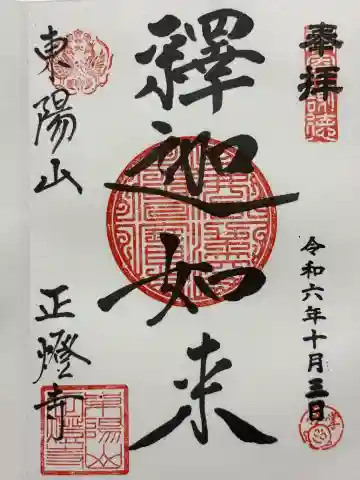 奉拝
令和六年十月三日
釋迦如来
東陽山
正燈寺
東陽山
正燈寺